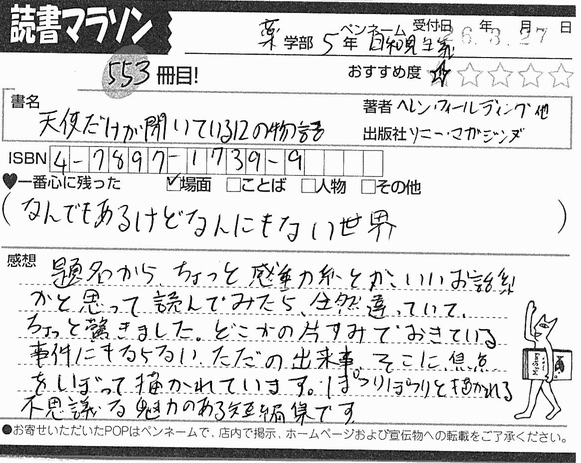 読書マラソン
薬学部 5年 ペンネーム 日和見主義 受付日 年 月 日
26.3.27
553冊目!
おすすめ度 ★☆☆☆☆
書名
天使だけが聞いている12の物語
著者 ヘレン・フィールディング他
出版社 ソニー・マガジンズ
ISBN 4-7897-1739-9
♥一番心に残った ☑場面 □ことば □人物 □その他
(なんでもあるけどなんにもない世界)
感想
題名から、ちょっと感動系とか、いいお話系
かと思って読んでみたら、全然違っていて、
ちょっと驚きました。どこかの片すみでおきている
事件にもならない、ただの出来事、そこに焦点
をしぼって描かれています。ぽつりぽつりと描かれる
不思議な魅力のある短編集です
●お寄せいただいたPOPはペンネームで、店内で掲示、ホームページおよび宣伝物への転載をご了承ください。